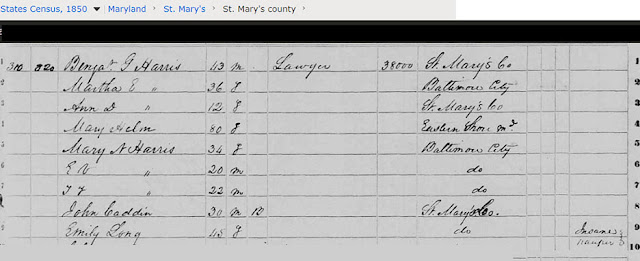 States Census, 1850 ▼ Maryland › St. Mary's › St. Mary's county ›
1 310 320 Benja. G Harris 43 m Lawyer 38000 St. Mary's Co 1
2 Martha E " 36 f Baltimore City 2
3 Ann D " 12 f St. Mary's Co 3
4 Mary Helm 80 f Eastern Shore Md 4
5 Mary N Harris 34 f Baltimore City 5
6 E V " 20 m do 6
7 T F " 22 m do 7
8 John Caddin 30 m 12 St. Mary's Co. 8
9 Emily Long 45 f do Insane & 9
pauper 10